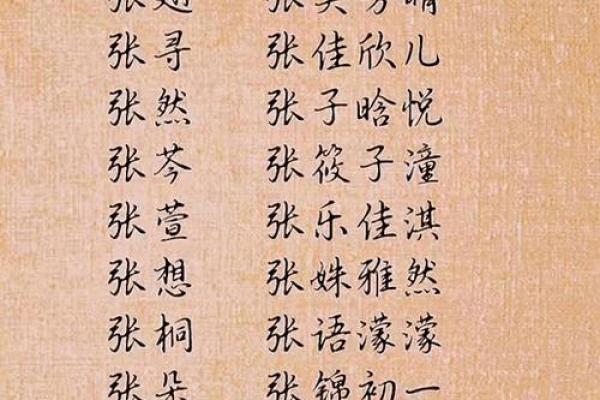 张翅 张芙芳晴
张寻 张佳欣儿
张然 张子晗悦
张芩 张筱子潼
张萱 张乐佳淇
张想 张姝雅然
张桐 张语濛濛
张朵 张锦初一